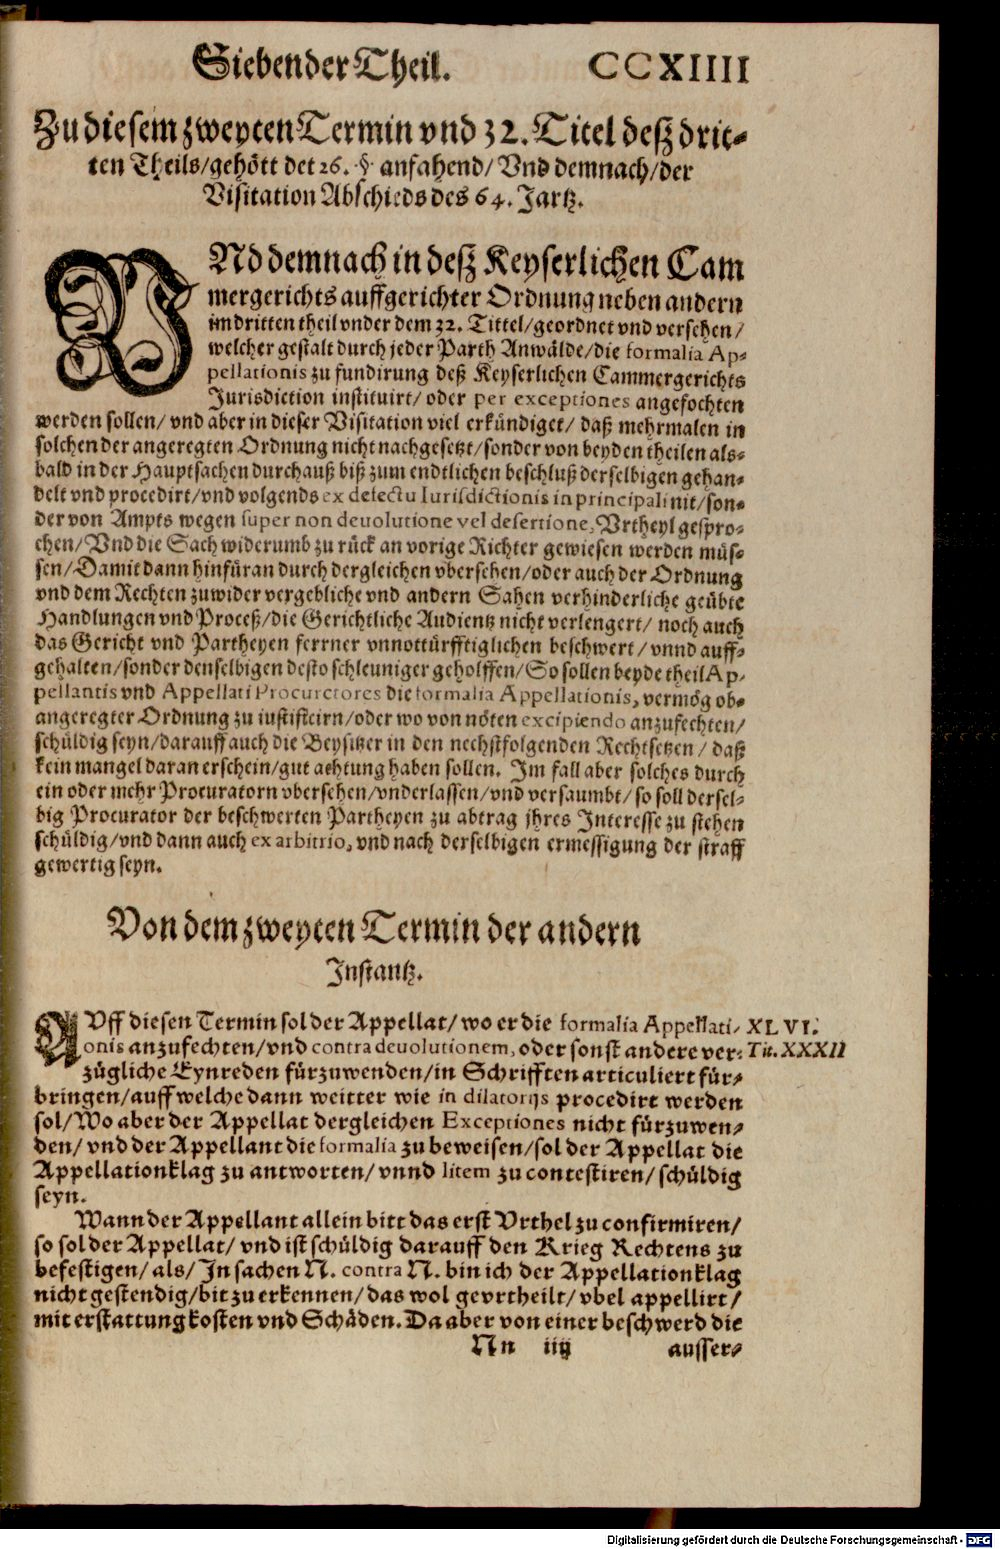 Siebender Theil. CCXIIII
Zu diesem zweyten Termin vnd 32. Titel deß drit-
ten Theils/gehött det 26. § anfahend/ Vnd demnach/der
Visitation Abschieds des 64. Jartz.
VNd demnach in deß Keyserlichen Cam
mergerichts auffgerichter Ordnung neben andern
im dritten theil vnder dem 32. Tittel/geordnet vnd versehen/
welcher gestalt durch jeder Parth Anwälde/die formalia Ap-
pellationis zu fundirung deß Keyserlichen Cammergerichts
Jurisdiction instituirt/ oder per exceptiones angefochten
werden sollen/ vnd aber in dieser Visitation viel erkündiget/ daß mehrmalen in
solchen der angeregten Ordnung nicht nachgesetzt/sonder von beyden theilen als-
bald in der Hauptsachen durchauß biß zum endtlichen beschluß derselbigen gehan-
delt vnd procedirt/vnd volgends ex defectu Iurisdictionis in principali nit/son-
der von Ampts wegen super non deuolutione vel desertione, Vrtheyl gespro-
chen/Vnd die Sach widerumb zu rück an vorige Richter gewiesen werden müs-
sen/Damit dann hinfüran durch dergleichen vbersehen/oder auch der Ordnung
vnd dem Rechten zuwider vergebliche vnd andern Sahen verhinderliche geübte
Handlungen vnd Proceß/die Gerichtliche Audientz nicht verlengert/ noch auch
das Gericht vnd Partheyen ferrner vnnottürfftiglichen beschwert/ vnnd auff-
gehalten/sonder denselbigen desto schleuniger geholffen/So sollen beyde theil Ap-
pellantis vnd Appellati Procurctores die formalia Appellationis, vermög ob-
angeregter Ordnung zu iustisicirn/oder wo von nöten excipiendo anzufechten/
schüldig seyn/darauff auch die Beysitzer in den nechstfolgenden Rechtsetzen/ daß
kein mangel daran erschein/gut achtung haben sollen. Im fall aber solches durch
ein oder mehr Procuratorn vbersehen/vnderlassen/vnd versaumbt/ so soll dersel-
big Procurator der beschwerten Partheyen zu abtrag jhres Interesse zu stehen
schüldig/vnd dann auch ex arbitrio, vnd nach derselbigen ermessigung der straff
gewertig seyn.
Von dem zweyten Termin der andern
Instantz.
AVff diesen Termin sol der Appellat/ wo er die formalia Appellati- XLVI.
onis anzufechten/vnd contra deuolutionem, oder sonst andere ver- Tit. XXXII
zügliche Eynreden fürzuwenden/in Schrifften articuliert für-
bringen/auff welche dann weitter wie in dilatorijs procedirt werden
sol/Wo aber der Appellat dergleichen Exceptiones nicht fürzuwen-
den/ vnd der Appellant die formalia zu beweisen/sol der Appellat die
Appellationklag zu antworten/ vnnd litem zu contestiren/ schüldig
seyn.
Wann der Appellant allein bitt das erst Vrthel zu confirmiren/
so sol der Appellat/ vnd ist schüldig darauff den Krieg Rechtens zu
befestigen/ als/ In sachen N. contra N. bin ich der Appellationklag
nicht gestendig/bit zu erkennen/ das wol gevrtheilt/ vbel appellirt/
mit erstattung kosten vnd Schäden. Da aber von einer beschwerd die
Nn iiij ausser-
Digitalisierung gefördert durch die Deutsche Forschungsgemeinschaft - DFG